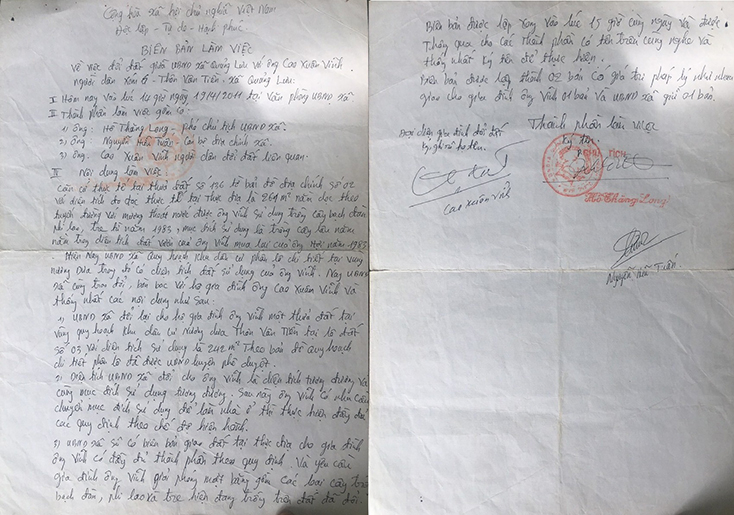 Cộng hòa xã hội chủ nghĩa Việt Nam
Độc lập - Tự do - Hạnh phúc
BIÊN BẢN LÀM VIỆC
Về việc đổi đất giữa UBND xã Quảng Lưu và ông Cao Xuân Vinh
người dân xóm 6 - Thôn Vân Tiền - xã Quảng Lưu.
I Hôm nay vào lúc 14 giờ ngày 19/4/2011 tại Văn phòng UBND xã
II Thành phần làm việc gồm có:
1) Ông: Hồ Thăng Long - phó chủ tịch UBND xã.
2) Ông: Nguyễn Hữu Tuấn. Cán bộ địa chính xã.
3) Ông. Cao Xuân Vinh người dân đổi đất liên quan.
III Nội dung làm việc
Căn cứ thực tế tại thửa đất số 136 tờ bản đồ địa chính số 02
với diện tích đo đạc thực tế tại thực địa là 261 m² nằm dọc theo
tuyến đường với mương thoát nước được ông Vinh sử dụng trồng cây bạch đàn
phi lao, tre từ năm 1985, mục đích sử dụng là trồng cây lâu năm
nằm trong diện tích đất vườn của ông Vinh mua lại của ông năm 1985
Hiện nay UBND xã Quy hoạch khu dân cư phân lô chi tiết tại vùng
nương Dưa trong đó có diện tích đất sử dụng của ông Vinh. Nay UBND
xã cùng trao đổi, bàn bạc với hộ gia đình ông Cao Xuân Vinh và
thống nhất các nội dung như sau:
1) UBND xã đổi lại cho hộ gia đình ông Vinh một thửa đất tại
vùng quy hoạch khu dân cư nương dưa thôn Vân Tiền tại lô đất
số 03 với diện tích sử dụng là 242 m² Theo bản đồ quy hoạch
chi tiết phân lô đã được UBND huyện phê duyệt.
2) Diện tích UBND xã đổi cho ông Vinh là diện tích tương đương và
cùng mục đích sử dụng tương đương. Sau này ông Vinh có nhu cầu
chuyển mục đích sử dụng để làm nhà ở thì thực hiện đúng
các quy định theo chế độ hiện hành.
3) UBND xã sẽ có biên bản giao đất tại thực địa cho gia đình
ông Vinh có đầy đủ thành phần theo quy định. Và yêu cầu
gia đình ông Vinh giải phóng mặt bằng gồm các loại cây
bạch đàn, phi lao và tre hiện đang trồng trên đất đã đổi.
Biên bản được lập xong vào lúc 15 giờ cùng ngày và được
thông qua cho các thành phần có tên trên cùng nghe và
thống nhất ký tên để thực hiện.
Biên bản được lập thành 02 bản có giá trị pháp lý như nhau
giao cho gia đình ông Vinh 01 bản và UBND xã giữ 01 bản.
Đại diện gia đình đổi đất
ký ghi rõ họ tên.
Cao Xuân Vinh
Thành phần làm việc
ký tên
CHỦ TỊCH
Hồ Thăng Long
Nguyễn Hữu Tuấn